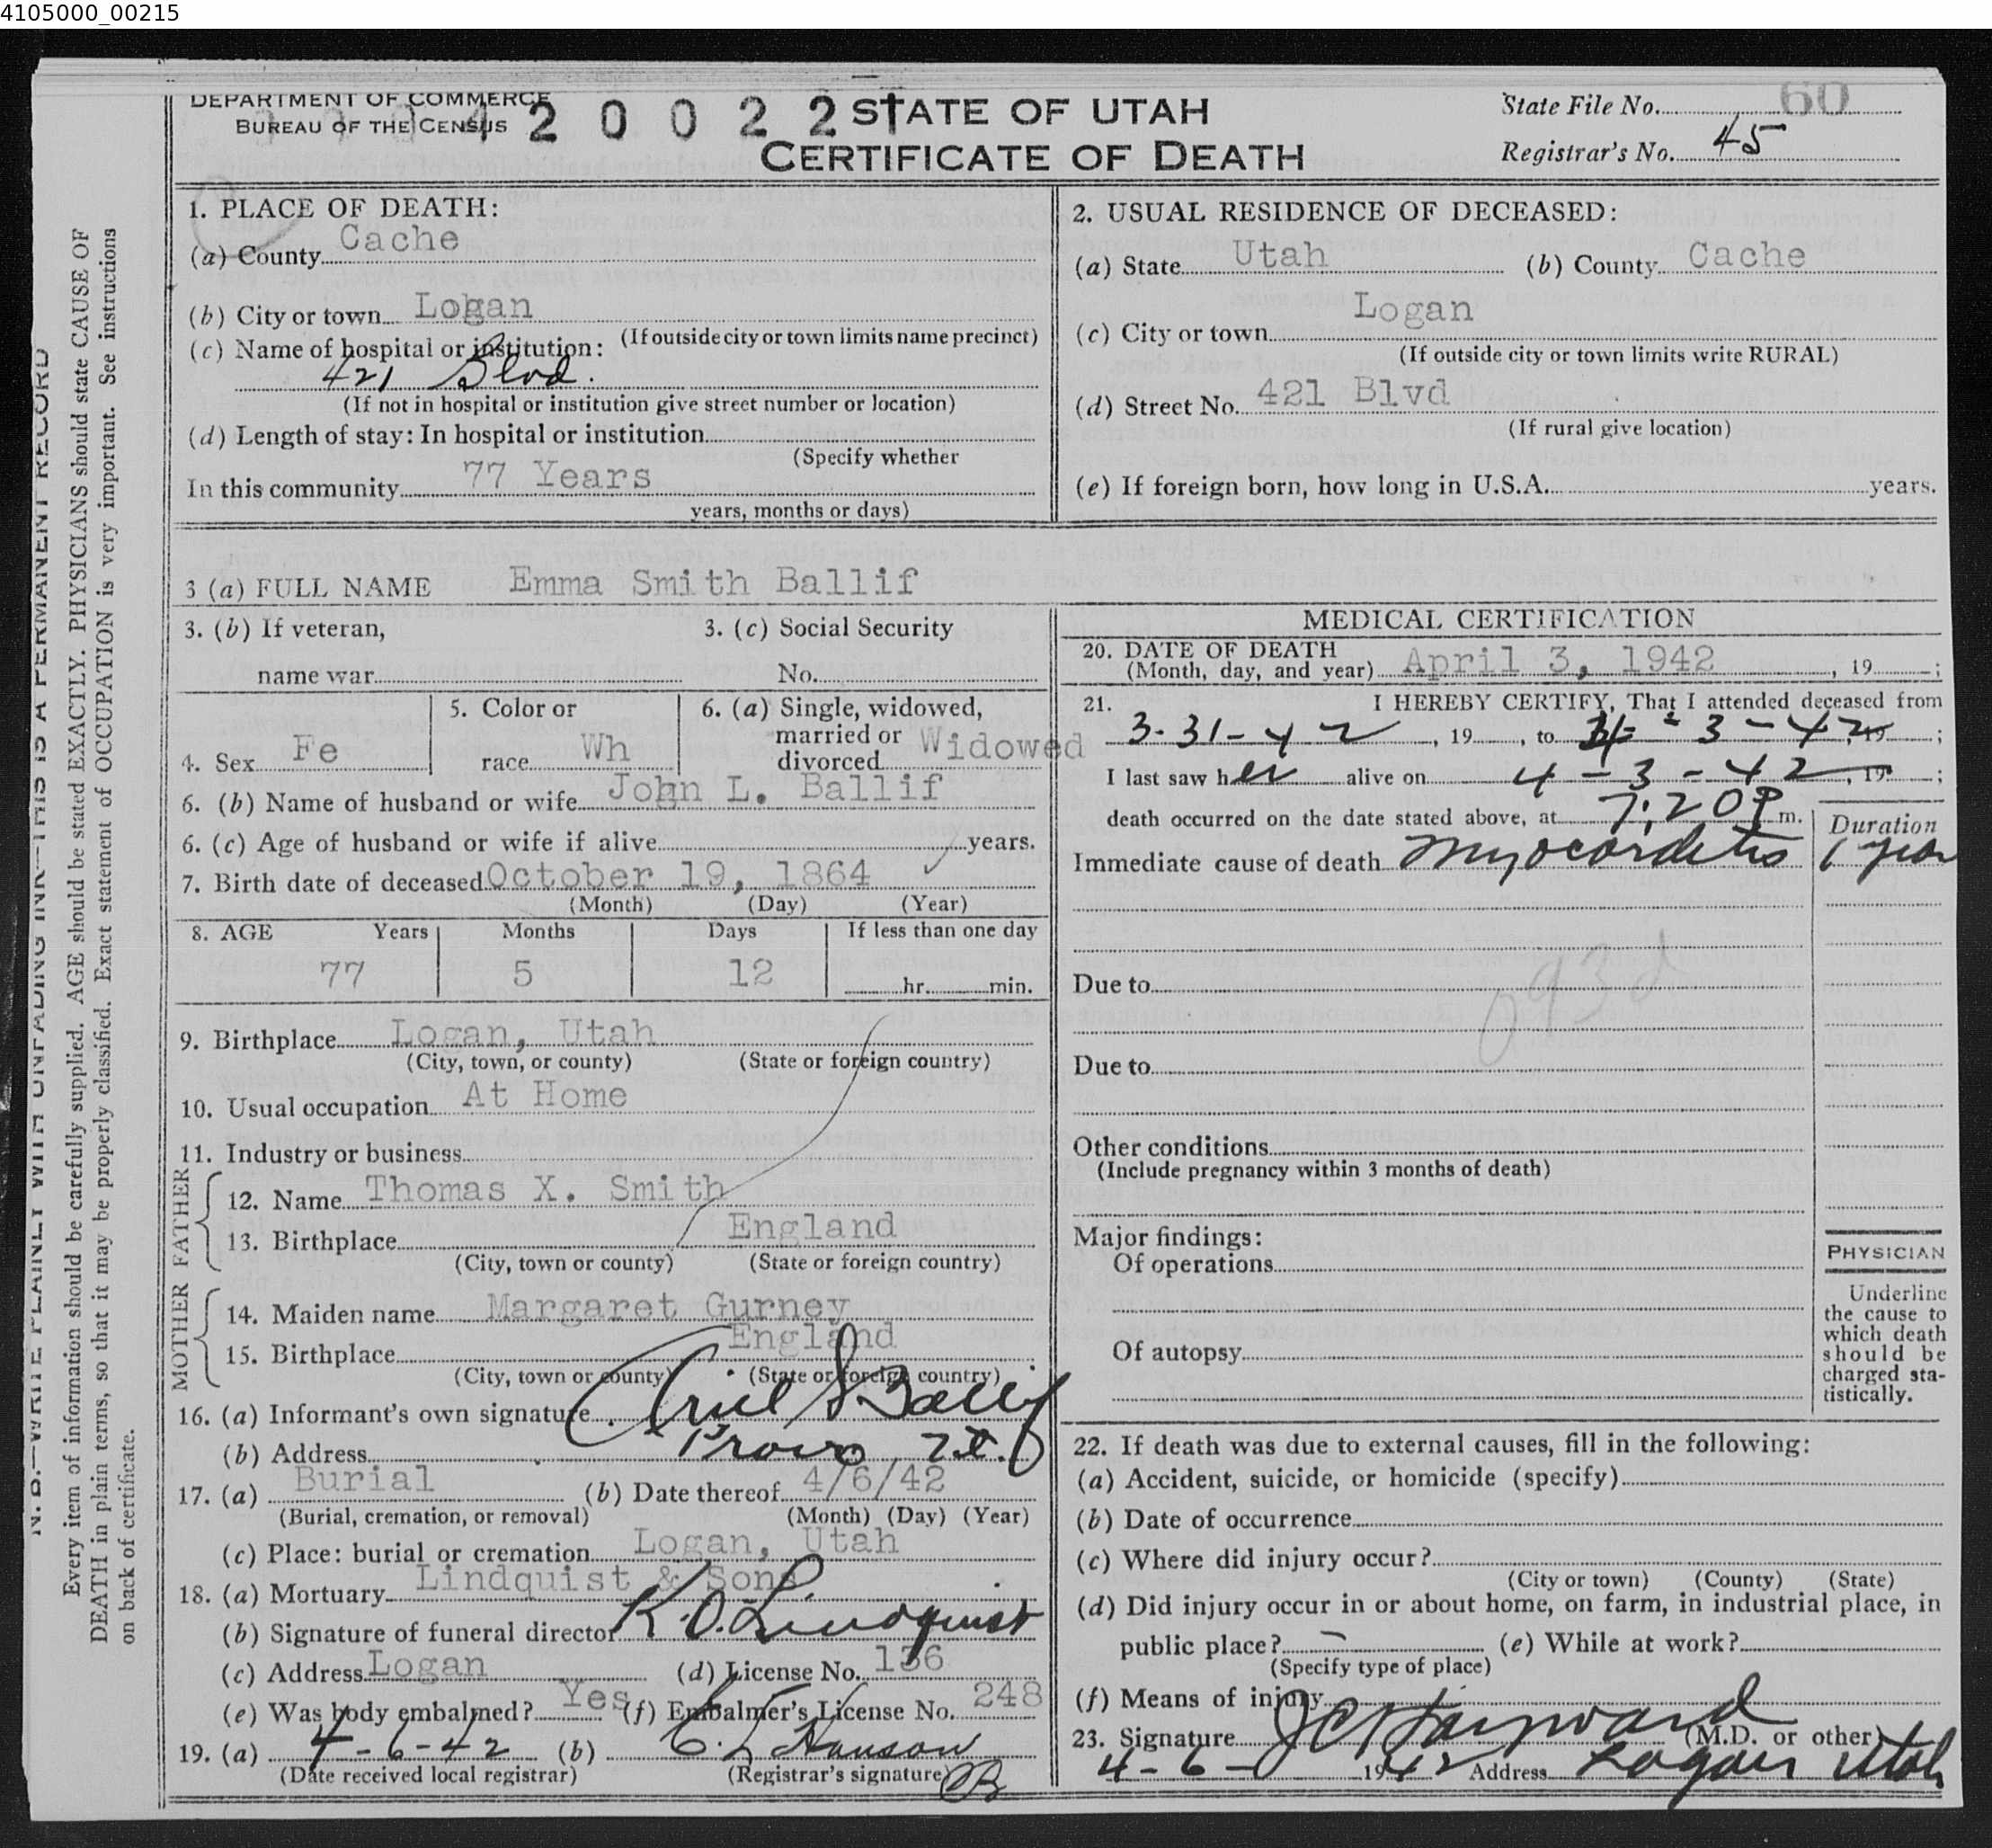 4105000_00215
DEPARTMENT OF COMMERCE
BUREAU OF THE CENSUS
4 2 0 0 2 2
STATE OF UTAH
CERTIFICATE OF DEATH
State File No. 60
Registrar's No. 45
N. B.—WRITE PLAINLY WITH UNFADING INK—THIS IS A PERMANENT RECORD
Every item of information should be carefully supplied. AGE should be stated EXACTLY. PHYSICIANS should state CAUSE OF
DEATH in plain terms, so that it may be properly classified. Exact statement of OCCUPATION is very important. See instructions
on back of certificate.
1. PLACE OF DEATH:
(a) County Cache
(b) City or town Logan
(If outside city or town limits name precinct)
(c) Name of hospital or institution:
421 Blvd.
(If not in hospital or institution give street number or location)
(d) Length of stay: In hospital or institution
(Specify whether
In this community 77 Years
years, months or days)
2. USUAL RESIDENCE OF DECEASED:
(a) State Utah (b) County Cache
(c) City or town Logan
(If outside city or town limits write RURAL)
(d) Street No. 421 Blvd
(If rural give location)
(e) If foreign born, how long in U.S.A. years.
3 (a) FULL NAME Emma Smith Ballif
3. (b) If veteran,
name war
3. (c) Social Security
No.
4. Sex Fe
5. Color or
race Wh
6. (a) Single, widowed,
married or
divorced Widowed
6. (b) Name of husband or wife John L. Ballif
6. (c) Age of husband or wife if alive years.
7. Birth date of deceased October 19, 1864
(Month) (Day) (Year)
8. AGE Years Months Days If less than one day
77 5 12 hr. min.
9. Birthplace Logan, Utah
(City, town, or county) (State or foreign country)
10. Usual occupation At Home
11. Industry or business
FATHER
12. Name Thomas X. Smith
13. Birthplace England
(City, town or county) (State or foreign country)
MOTHER
14. Maiden name Margaret Gurney
15. Birthplace England
(City, town or county) (State or foreign country)
16. (a) Informant's own signature Ariel S Ballif
(b) Address Provo, Ut.
17. (a) Burial (b) Date thereof 4/6/42
(Burial, cremation, or removal) (Month) (Day) (Year)
(c) Place: burial or cremation Logan, Utah
18. (a) Mortuary Lindquist & Sons
(b) Signature of funeral director K. O. Lindquist
(c) Address Logan (d) License No. 136
(e) Was body embalmed? Yes (f) Embalmer's License No. 248
19. (a) 4-6-42 (b) C. L. Hanson
(Date received local registrar) (Registrar's signature)
MEDICAL CERTIFICATION
20. DATE OF DEATH
(Month, day, and year) April 3, 1942, 19 ;
21. I HEREBY CERTIFY, That I attended deceased from
3-31-42, 19 , to 4-3-42, 19 ;
I last saw her alive on 4-3-42, 19 ;
death occurred on the date stated above, at 7:20 P m.
Duration
Immediate cause of death myocarditis 1 year
93d
Due to
Due to
Other conditions
(Include pregnancy within 3 months of death)
Major findings:
Of operations
Of autopsy
PHYSICIAN
Underline
the cause to
which death
should be
charged sta-
tistically.
22. If death was due to external causes, fill in the following:
(a) Accident, suicide, or homicide (specify)
(b) Date of occurrence
(c) Where did injury occur?
(City or town) (County) (State)
(d) Did injury occur in or about home, on farm, in industrial place, in
public place? (e) While at work?
(Specify type of place)
(f) Means of injury
23. Signature J C Hayward (M.D. or other)
4-6- 1942 Address Logan Utah